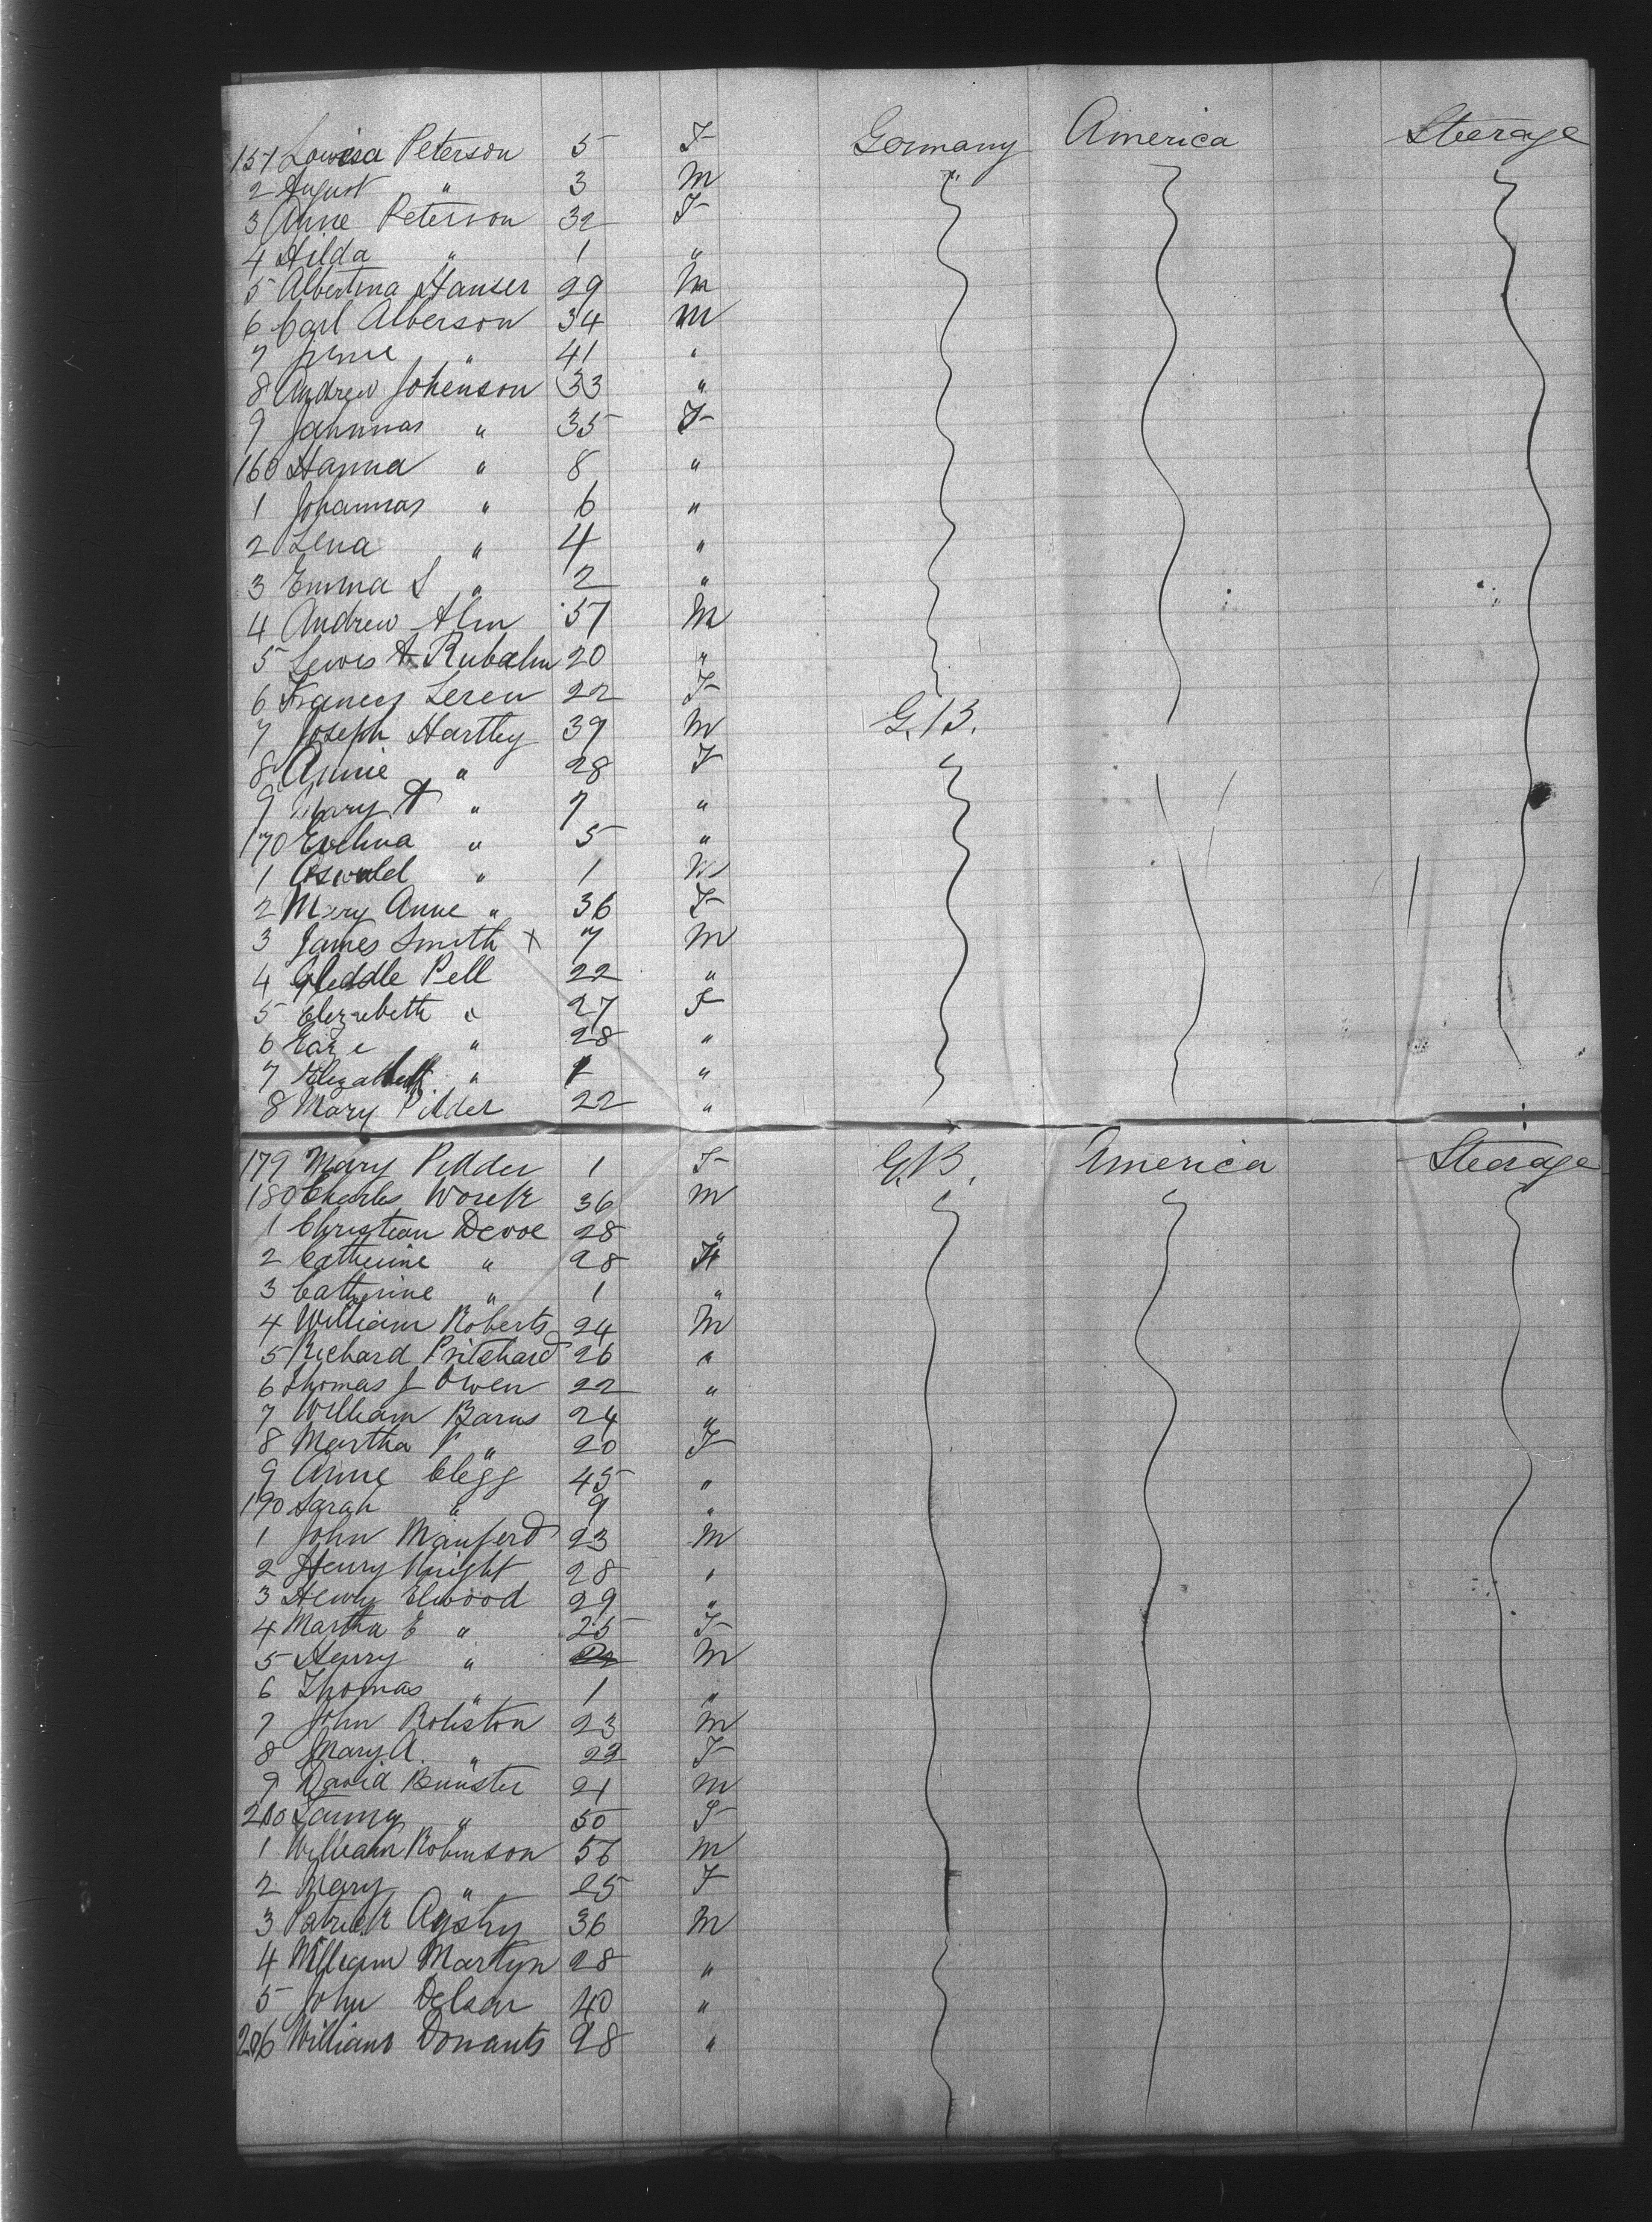 151 Lowisa Peterson 5 F Germany America Steerage
2 August " 3 M "
3 Anne Peterson 32 F
4 Hilda " 1 "
5 Albertina Hanser 29 M
6 Carl Alberson 34 M
7 " 41 "
8 Andrew Johenson 33 "
9 Jahnnas " 35 F
160 Hanna " 8 "
1 Johannas " 6 "
2 Lena " 4 "
3 Emma S " 2 "
4 Andrew Alm 57 M
5 Lewis A Rubalm 20 "
6 Francis Leren 22 F
7 Joseph Hartley 39 M G.B.
8 Annie " 28 F
9 Mary A " 7 "
170 Evelina " 5 "
1 Oswald " 1 M
2 Mary Anne " 36 F
3 James Smith x 7 M
4 Pell 22 "
5 Elezabeth " 27 F
6 " 28 "
7 Elizabeth " "
8 Mary Pilder 22 "
179 Mary Pedder 1 F G.B. America Steerage
180 Charles 36 M
1 Christian Devoe 28 "
2 Catherine " 28 F
3 Catherine " 1 "
4 William Roberts 24 M
5 Richard Pritchard 26 "
6 Thomas J Owen 22 "
7 William Barns 24 "
8 Martha P " 20 F
9 Anne Clegg 45 "
190 Sarah " 9 "
1 John Manferd 23 M
2 Henry Knight 28 "
3 Henry Elwood 29 "
4 Martha E " 25 F
5 Henry " M
6 Thomas " 1 "
7 John Roliston 23 M
8 Mary A. " 22 F
9 David Bunster 21 M
200 Fanny " 50 F
1 William Robinson 56 M
2 Mary " 25 F
3 Patrick 36 M
4 William Martyn 28 "
5 John Delsar 40 "
206 William Donants 28 "